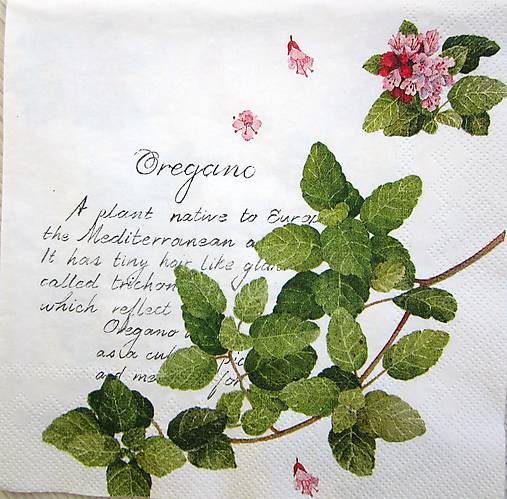 Oregano
A plant native to Europ
the Mediterranean a
It has tiny hair like glan
called trichom
which reflect
Oregano
as a cul
and me for